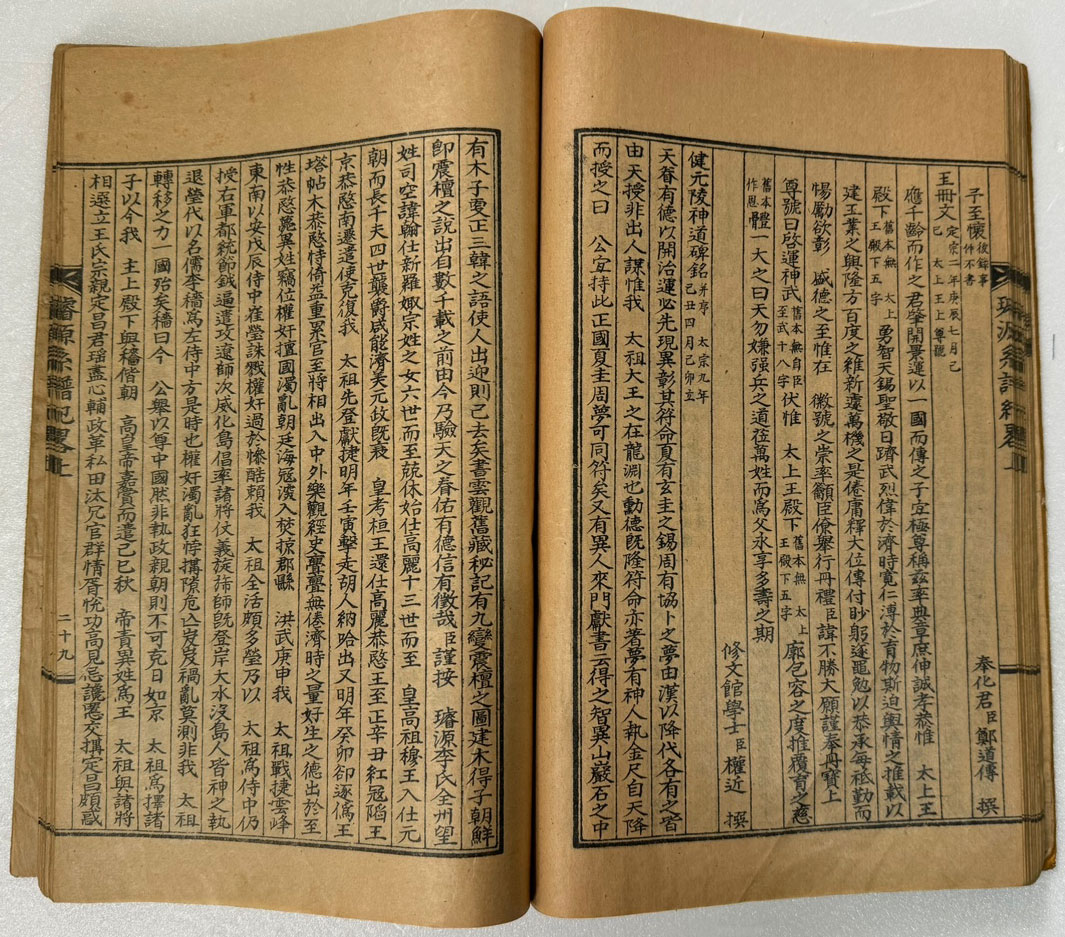 璿源系譜紀畧上
子至懷 後敍事件不書
奉化君臣鄭道傳 撰
王冊文 定宗二年庚辰七月己巳 太上王上尊號
應千齡而作之君肇開景運以一國而傳之子宜極尊稱玆率典章庶伸誠孝恭惟 太上王
殿下 舊本無 太上王殿下五字 勇智天錫聖敬日躋武烈偉於濟時寬仁溥於育物斯迫輿情之推戴以
建王業之興隆方百度之維新遽萬機之是倦庸釋大位傳付眇躬逐黽勉以恭承每祗勤而
惕勵欲彰 盛德之至惟在 徽號之崇率籲臣僚擧行冊禮臣諱不勝大願謹奉冊寶上
尊號曰啓運神武 舊本無自臣至武十八字 伏惟 太上王殿下 舊本無 太上王殿下五字 廓包容之度推覆育之慈
舊本 作恩 一大之曰天勿嫌强兵之道莅萬姓而爲父永享多壽之期
修文館學士臣權近 撰
健元陵神道碑銘 幷序 太宗九年己丑四月己卯立
天眷有德以開治運必先現異彰其符命夏有玄圭之錫周有協卜之夢由漢以降代各有之皆
由天授非出人謀惟我 太祖大王之在龍淵也勳德旣隆符命亦著夢有神人執金尺自天降
而授之曰 公宜持此正國夏圭周夢可同符矣又有異人來門獻書云得之智異山巖石之中
有木子更正三韓之語使人出迎則已去矣書雲觀舊藏秘記有九變震檀之圖建木得子朝鮮
卽震檀之說出自數千載之前由今乃驗天之眷佑有德信有徵哉臣謹按 璿源李氏全州望
姓司空諱翰仕新羅娶宗姓之女六世而至兢休始仕高麗十三世而至 皇高祖穆王入仕元
朝而長千夫四世襲爵咸能濟美元政旣衰 皇考桓王還仕高麗恭愍王至正辛丑紅寇陷王
京恭愍南遷遣使克復我 太祖先登獻捷明年壬寅擊走胡人納哈出又明年癸卯却逐僞王
塔帖木恭愍恃倚益重累官至將相出入中外樂觀經史亹亹無倦濟時之量好生之德出於至
性恭愍薨異姓竊位權奸擅國濁亂朝廷海寇深入焚掠郡縣 洪武庚申我 太祖戰捷雲峰
東南以安戊辰侍中崔瑩誅戮權奸過於慘酷賴我 太祖全活頗多瑩乃以 太祖爲侍中仍
授右軍都統節鉞逼遣攻遼師次威化島倡率諸將仗義旋斾師旣登岸大水沒島人皆神之執
退瑩代以名儒李穡爲左侍中方是時也權奸濁亂狂悖搆隙危亾岌岌禍亂莫測非我 太祖
轉移之力一國殆矣穡曰今 公擧以尊中國然非執政親朝則不可克日如京 太祖爲擇諸
子以今我 主上殿下與穡偕朝 高皇帝嘉賞而遣己巳秋 帝責異姓爲王 太祖與諸將
相選立王氏宗親定昌君瑤盡心輔政革私田汰冗官群情胥悅功高見忌讒慝交搆定昌頗惑
璿源系譜紀畧上
二十九